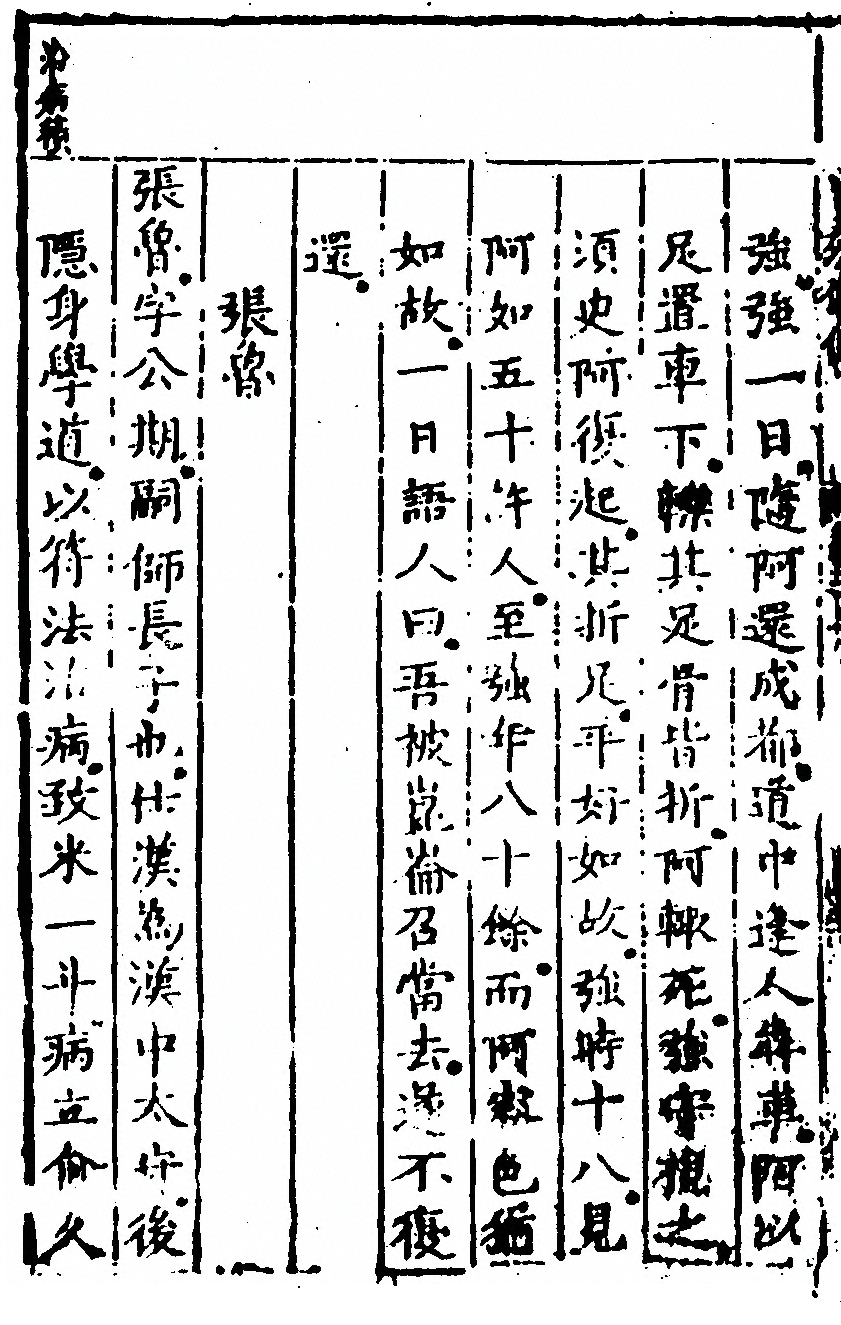 強強一日隨阿還成都道中逢人犇車阿以
足置車下轢其足骨皆折阿輒死強守視之
須臾阿復起其折足平好如故強時十八見
阿如五十許人至強年八十餘而阿顏色猶
如故一日語人曰吾被崑崙召當去遂不復
還
張魯
張魯字公期嗣師長子也仕漢為漢中太守後
隱身學道以符法治病致米一斗病立愈久
治病積